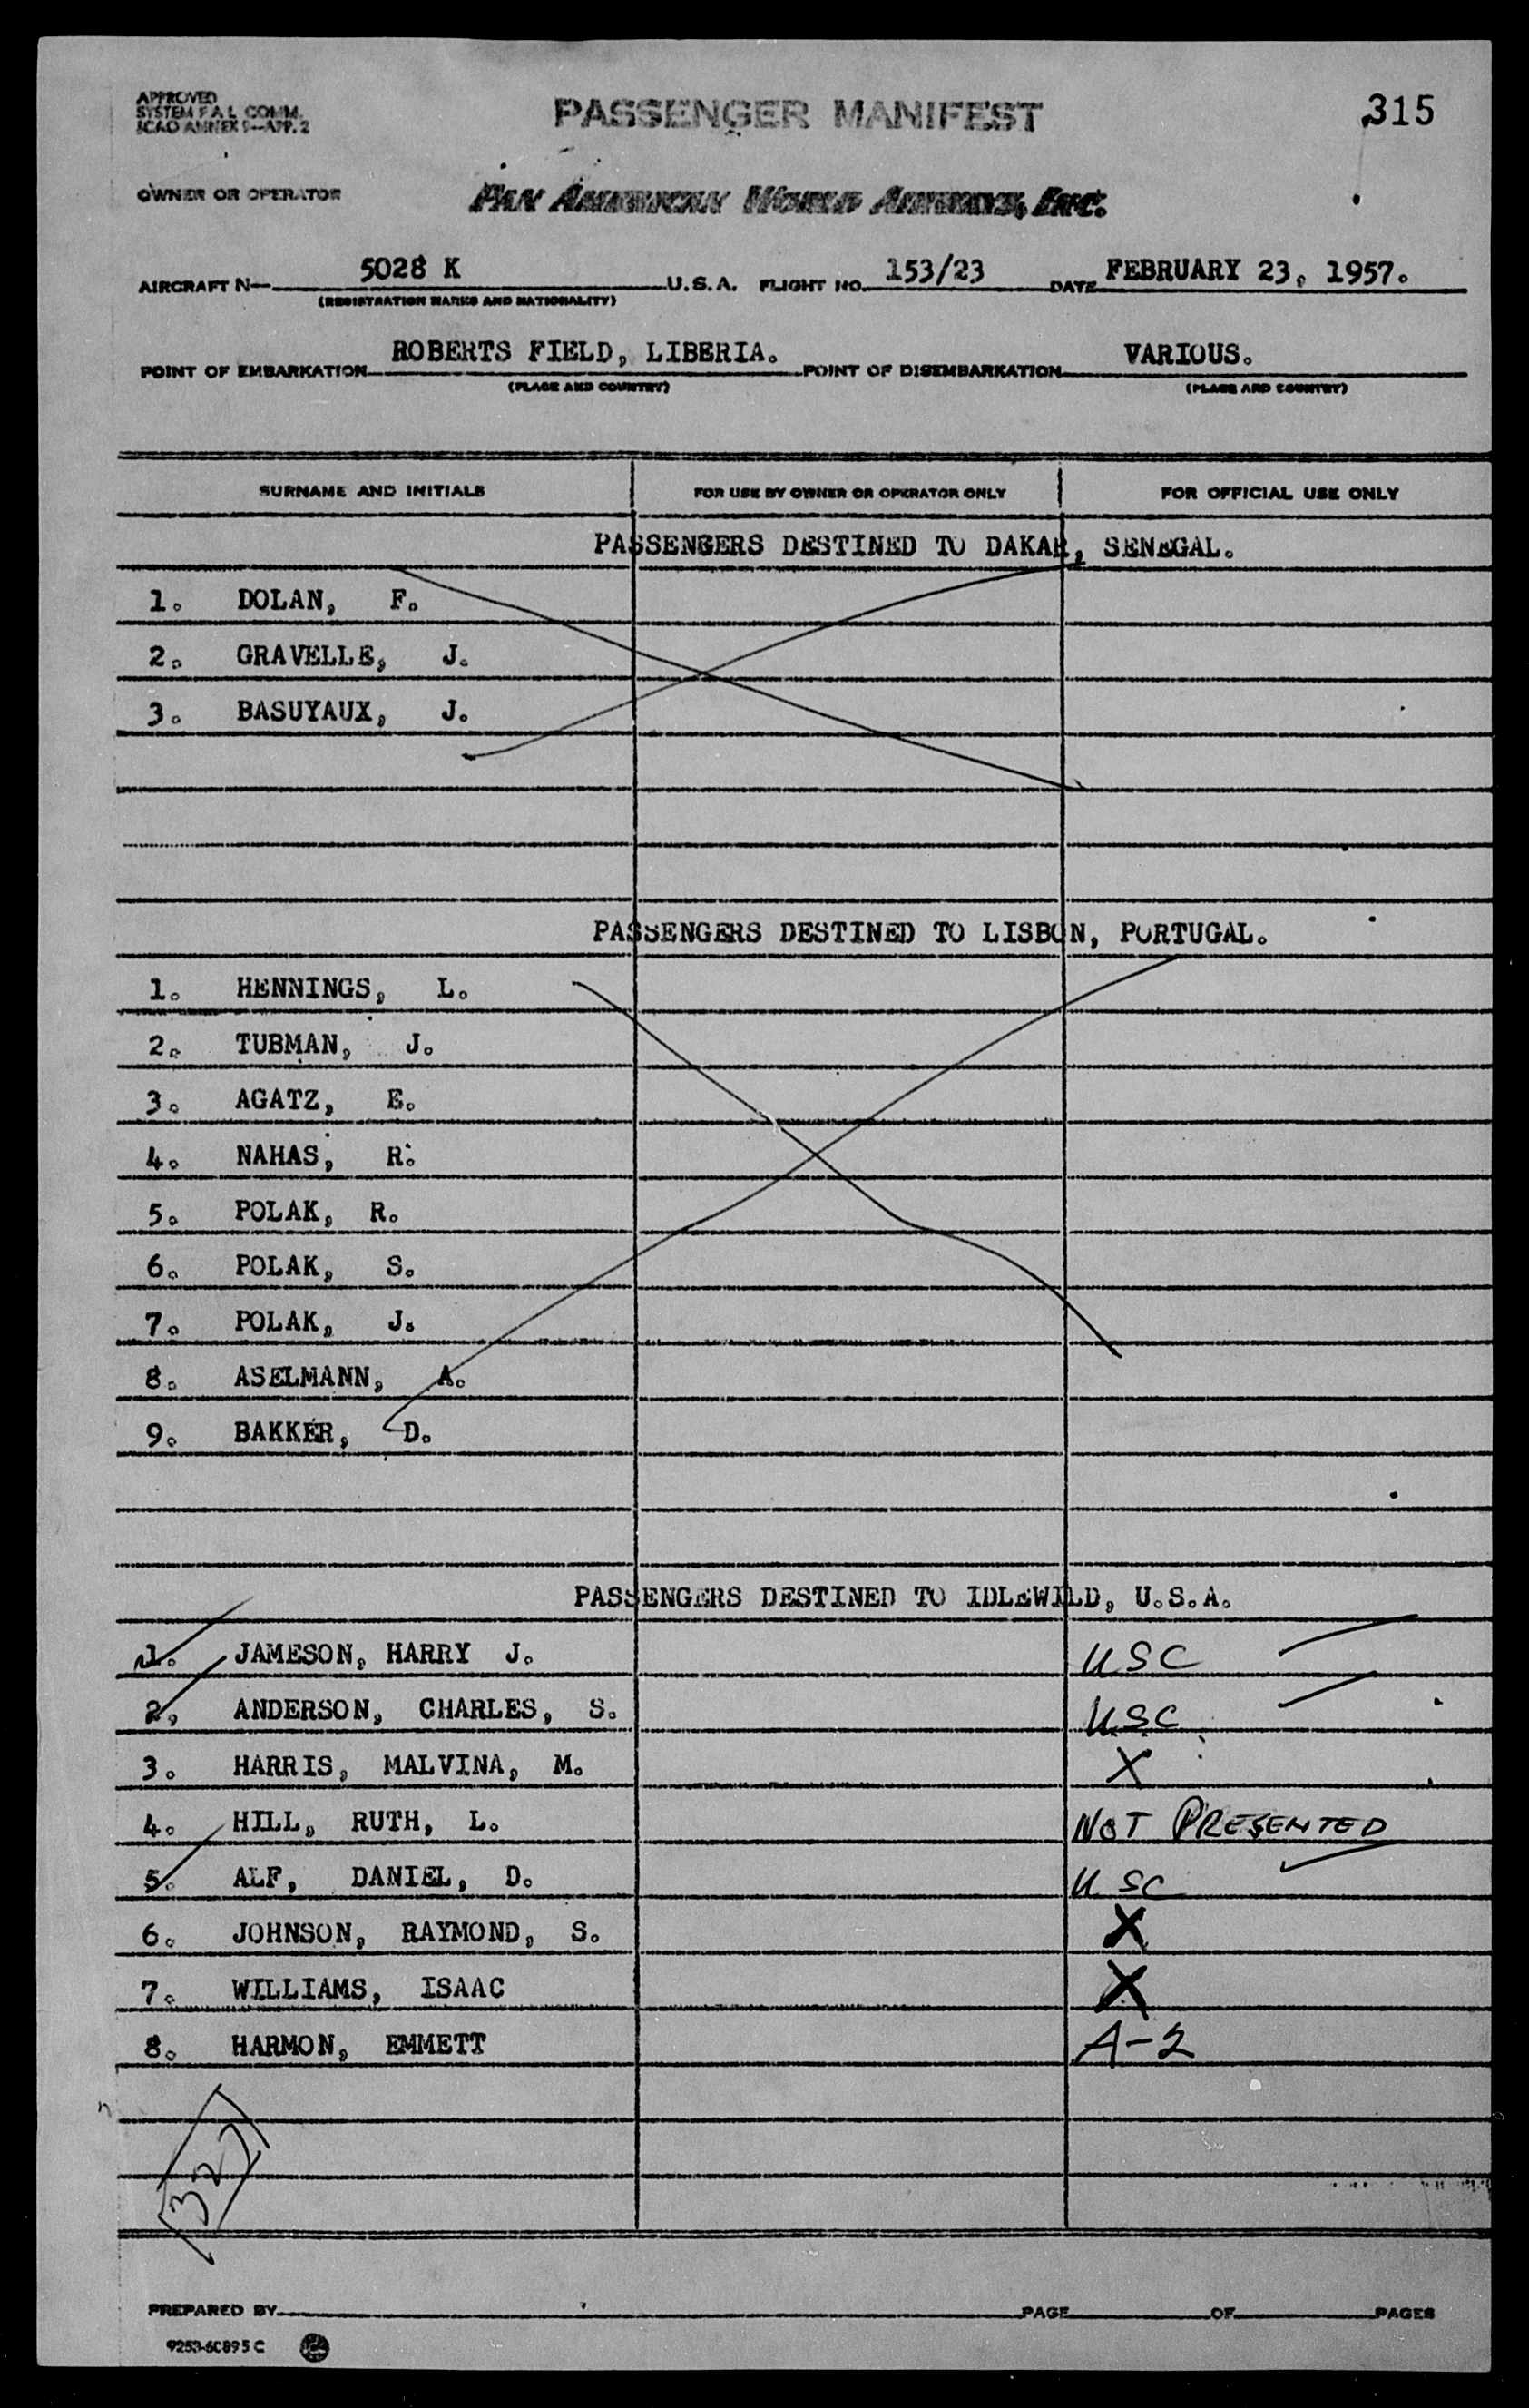 APPROVED
SYSTEM F.A.L. COMM.
ICAO ANNEX 9—APP. 2
PASSENGER MANIFEST
315
OWNER OR OPERATOR
PAN AMERICAN WORLD AIRWAYS, INC.
AIRCRAFT N— 5028 K U.S.A. FLIGHT NO. 153/23 DATE FEBRUARY 23, 1957.
(REGISTRATION MARKS AND NATIONALITY)
POINT OF EMBARKATION ROBERTS FIELD, LIBERIA. POINT OF DISEMBARKATION VARIOUS.
(PLACE AND COUNTRY) (PLACE AND COUNTRY)
SURNAME AND INITIALS FOR USE BY OWNER OR OPERATOR ONLY FOR OFFICIAL USE ONLY
PASSENGERS DESTINED TO DAKAR, SENEGAL.
1. DOLAN, F.
2. GRAVELLE, J.
3. BASUYAUX, J.
PASSENGERS DESTINED TO LISBON, PORTUGAL.
1. HENNINGS, L.
2. TUBMAN, J.
3. AGATZ, E.
4. NAHAS, R.
5. POLAK, R.
6. POLAK, S.
7. POLAK, J.
8. ASELMANN, A.
9. BAKKER, D.
PASSENGERS DESTINED TO IDLEWILD, U.S.A.
1. JAMESON, HARRY J. USC
2. ANDERSON, CHARLES, S. USC
3. HARRIS, MALVINA, M. X
4. HILL, RUTH, L. NOT PRESENTED
5. ALF, DANIEL, D. USC
6. JOHNSON, RAYMOND, S. X
7. WILLIAMS, ISAAC X
8. HARMON, EMMETT A-2
PREPARED BY PAGE OF PAGES
9253-6C895 C